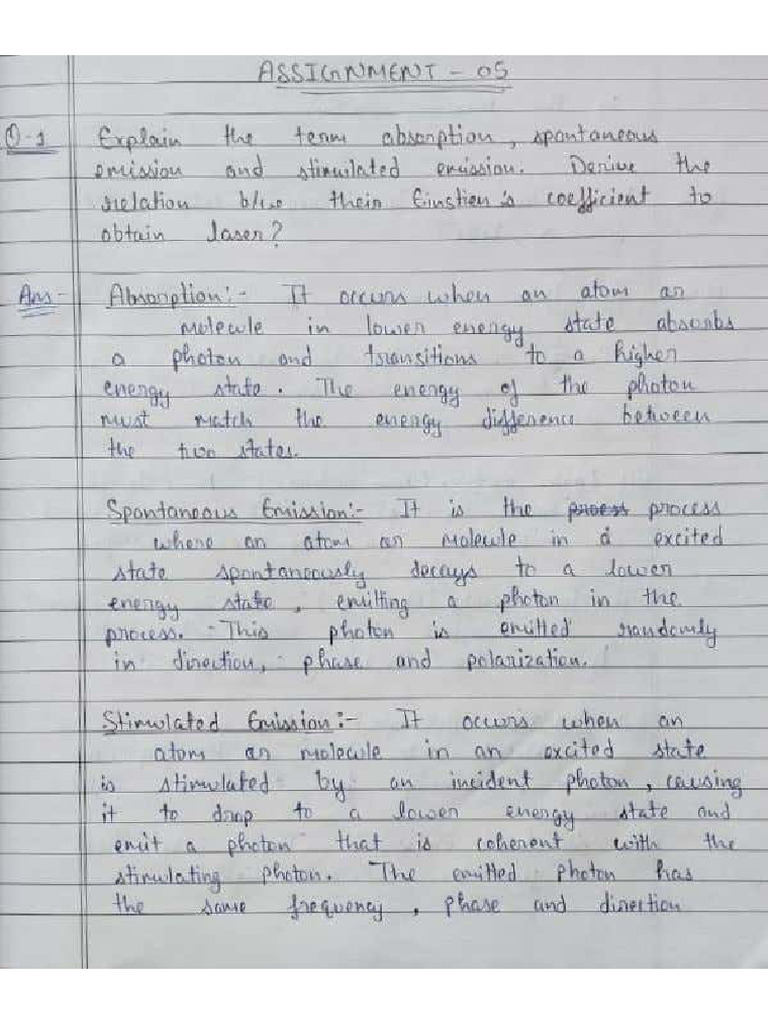 ASSIGNMENT - 05
Q-1 Explain the term absorption, spontaneous
emission and stimulated emission. Derive the
relation b/w their Einstien's coefficient to
obtain laser?
Ans- Absorption:- It occurs when an atom or
molecule in lower energy state absorbs
a photon and transitions to a higher
energy state. The energy of the photon
must match the energy difference between
the two states.
Spontaneous Emission:- It is the process process
where an atom or molecule in a excited
state spontaneously decays to a lower
energy state, emitting a photon in the
process. This photon is emitted randomly
in direction, phase and polarization.
Stimulated Emission:- It occurs when an
atom or molecule in an excited state
is stimulated by an incident photon, causing
it to drop to a lower energy state and
emit a photon that is coherent with the
stimulating photon. The emitted photon has
the same frequency, phase and direction